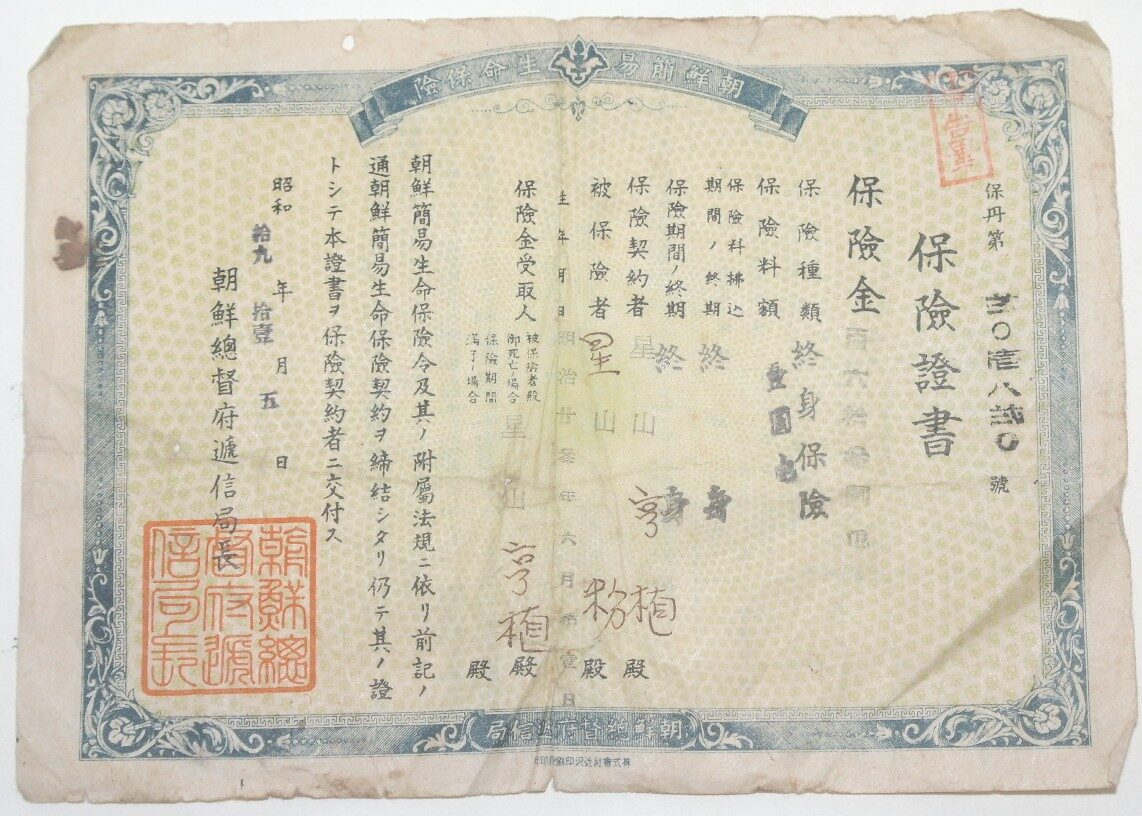 朝鮮簡易生命保險
保丹第 弍〇壹八弍〇 號
保險證書
保險金 百六拾
保險種類 終身保險
保險料額 壹圓
保險料拂込期間ノ終期 終身
保險期間ノ終期 終身
保險契約者 星山亨植 殿
被保險者 星山 殿
生年月日 明治廿參年六月 壹日
保險金受取人
被保險者死亡ノ場合
保險期間滿了ノ場合
星山亨植 殿
殿
朝鮮簡易生命保險令及其ノ附屬法規ニ依リ前記ノ
通朝鮮簡易生命保險契約ヲ締結シタリ仍テ其ノ證
トシテ本證書ヲ保險契約者ニ交付ス
昭和拾九年拾壹月五日
朝鮮總督府遞信局長
朝鮮總督府遞信局長
朝鮮總督府遞信局